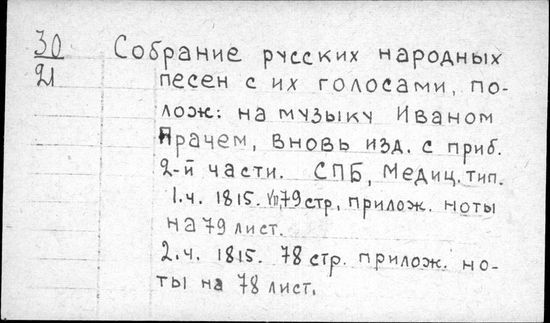 30 Собрание русских народных
21 песен с их голосами, по-
лож: на музыку Иваном
Прачем, вновь изд. с приб.
2-й части. СПБ, Медиц. тип.
1.ч. 1815. VII, 79 стр, прилож. ноты
на 79 лист.
2.ч. 1815. 78 стр. прилож. но-
ты на 78 лист.